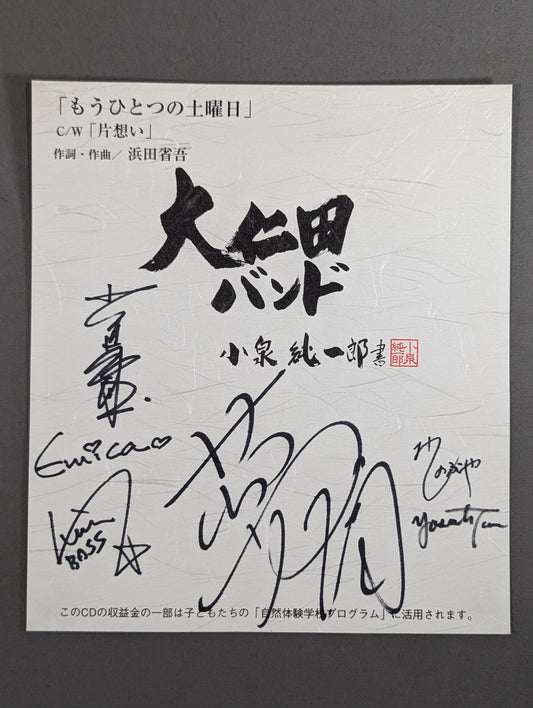 「もうひとつの土曜日」
C/W「片想い」
作詞・作曲／浜田省吾
大仁田
バンド
小泉純一郎書
小泉
純一郎
Emica
BASS
このCDの収益金の一部は子どもたちの「自然体験学校プログラム」に活用されます。